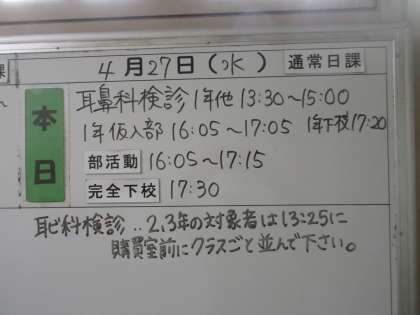 4月27日(水) 通常日課
課
本日
耳鼻科検診 1年他 13:30〜15:00
1年仮入部 16:05〜17:05 1年下校17:20
部活動 16:05〜17:15
完全下校 17:30
耳ビ科検診‥2,3年の対象者は13:25に
購買室前にクラスごと並んで下さい。